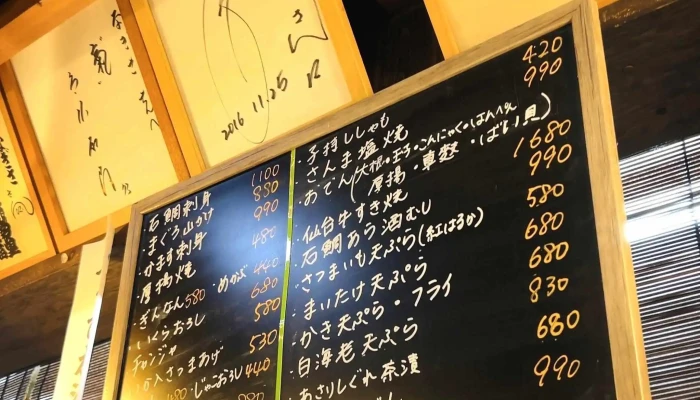 2016.11.25
さん江
石鯛刺身 1100
まぐろ山かけ 880
かます刺身 990
厚揚焼 480
ぎんなん580・めかぶ 440
いくらおろし 680
チャンジャ 580
さつまあげ 530
480・じゃこおろし 440
・子持ししゃも 420
・さんま塩焼 990
・おでん(大根・玉子・こんにゃく・はんぺん
厚揚・車麩・ばい貝)
・仙台牛すき焼 1680
・石鯛あら酒むし 990
・さつまいも天ぷら(紅はるか) 580
・まいたけ天ぷら 680
・かき天ぷら・フライ 680
・白海老天ぷら 830
・あさりしぐれ茶漬 680
990